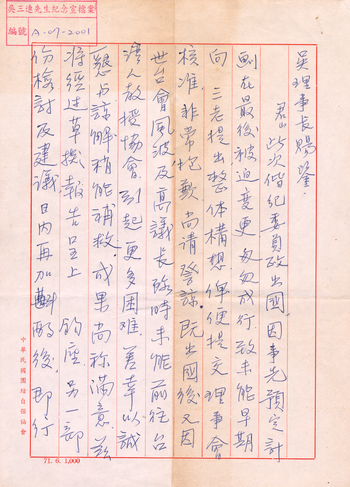 吳三連先生紀念室檔案
編號 A-07-2001
吳理事長賜鑒：
君山此次偕紀委員政出國，因事先預定計
劃在最後被迫變更，匆匆成行，致未能早期
向三老提出整体構想，俾便提交理事會
核准，非常抱歉，尚請警諒。既出國後，又因
世台會風波及高議長臨時未能前往台
灣人教授協會，引起更多困難，差幸以誠
懇与諒解稍能補救，成果尚称滿意。茲
將經过草擬報告呈上 鈞座，另一部
份檢討及建議日內再加斟酌後，即行
中華民國團結自強協會
71. 6. 1,000